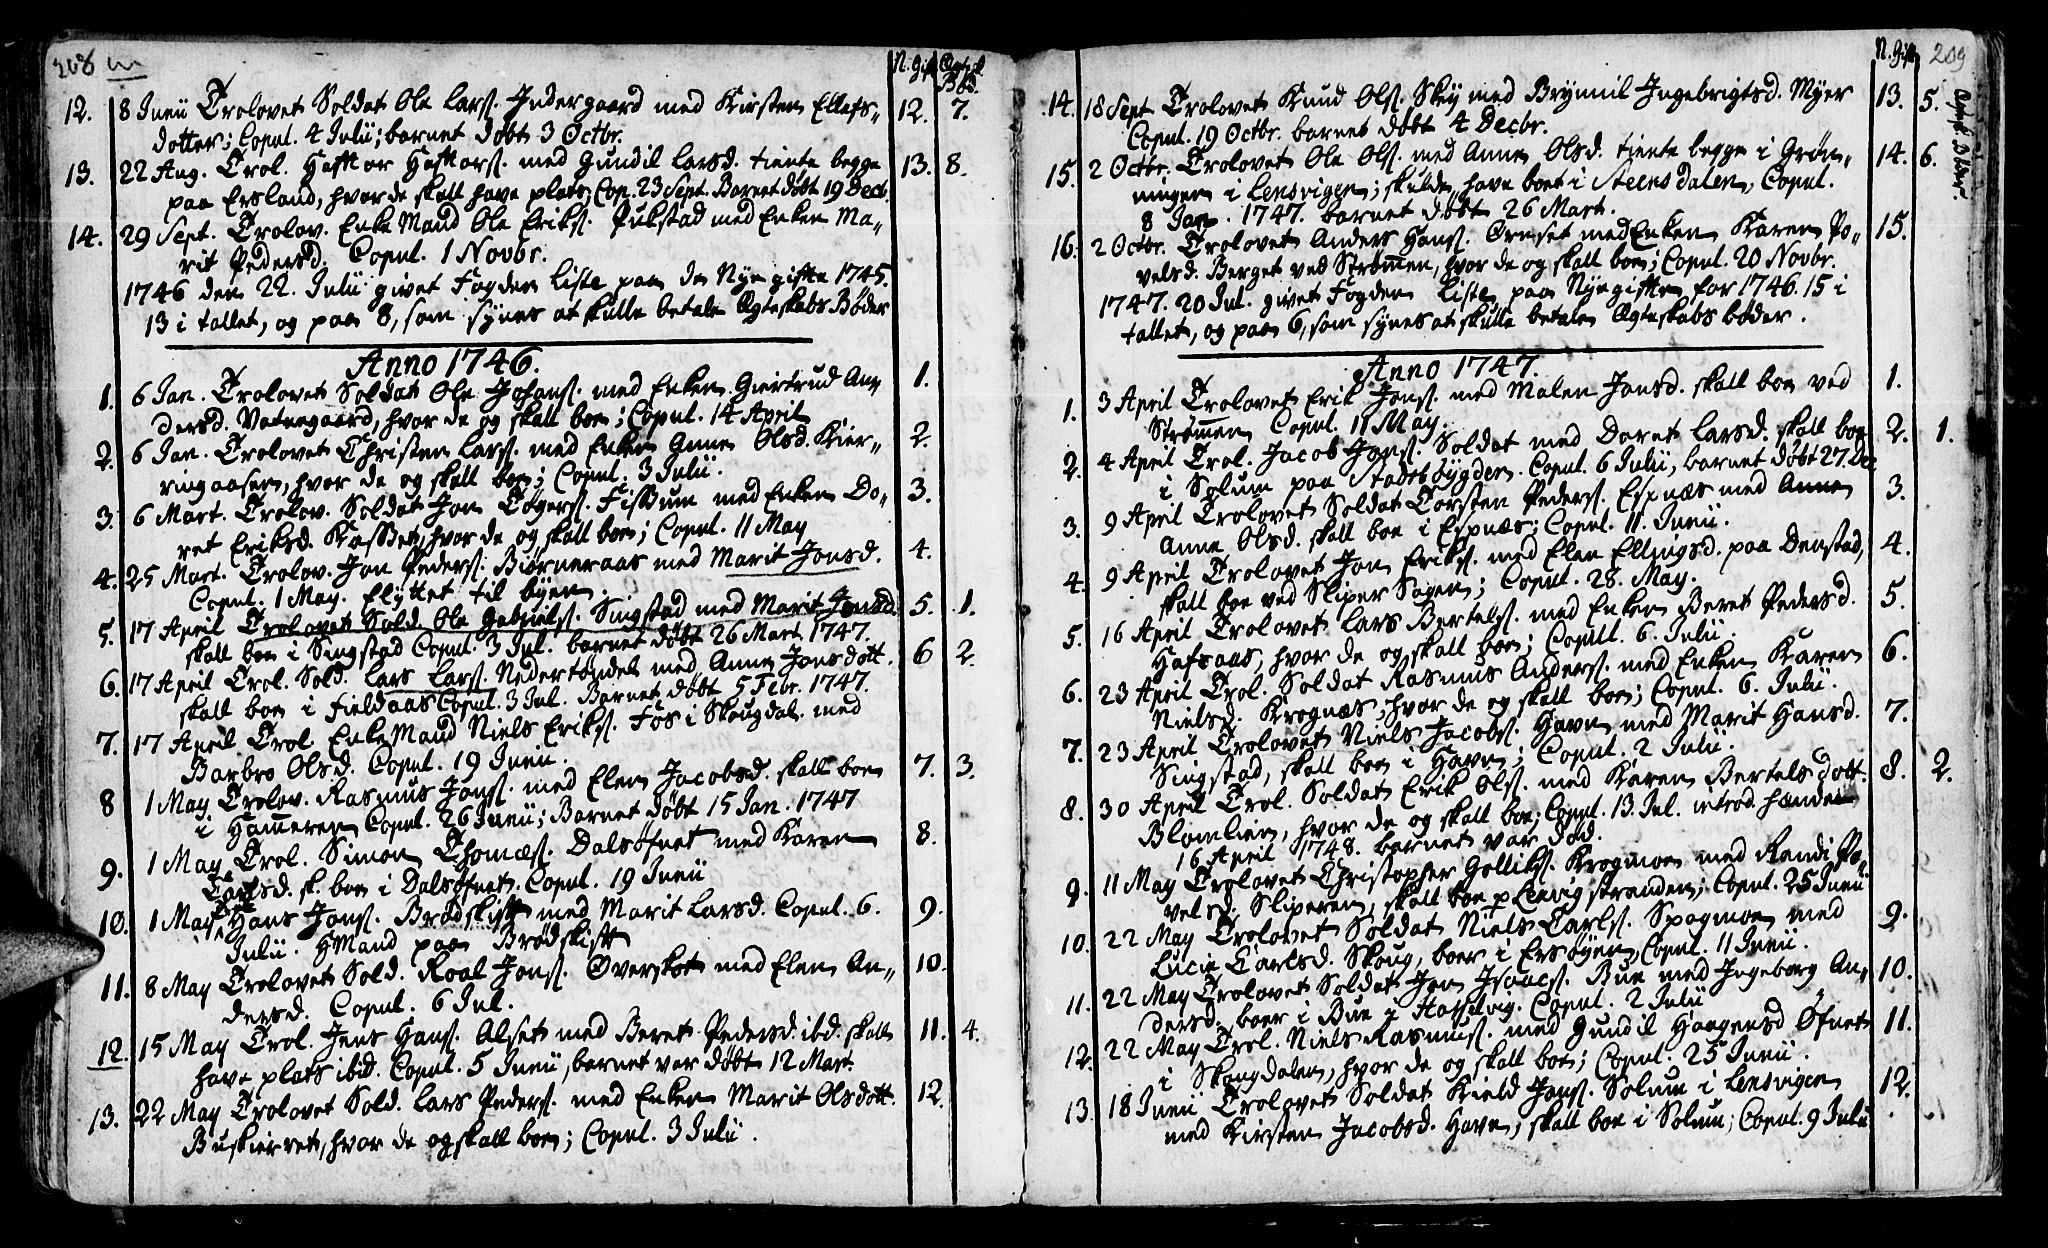 208
N. Gift
Egtsk. Bb.
12. 8 Junii Trolovet Soldat Ole Lars. Indergaard med Kirsten Ellefs- 12. 7.
dotter; Copul. 4 Julii; barnet døbt 3 Octbr.
13. 22 Aug. Trol. Haftor Haftors. med Gundil Larsd. tiente begge 13. 8.
paa Ersland, hvor de skall have plats Cop. 23 Sept. Barnet døbt 19 Decb.
14. 29 Sept. Trolov. Enke Mand Ole Eriks. Pukstad med Enken Ma-
rit Pedersd. Copul. 1 Novbr.
1746 den 22. Julii givet Fogden Liste paa de Nye gifte 1745.
13 i tallet, og paa 8, som synes at skulle betale Egteskabs Bøder
Anno 1746.
1. 6 Jan. Trolovet Soldat Ole Johans. med Enken Giertrud An- 1.
dersd. Vatnegaard, hvor de og skall boe; Copul. 14 April
2. 6 Jan. Trolovet Christen Lars. med Enken Anne Olsd. Kier- 2.
ringaasen, hvor de og skall boe; Copul. 3 Julii.
3. 6 Mart. Trolov. Soldat Jon Tøgers. Fissum med Enken Do- 3.
ret Eriksd. Kasset, hvor de og skall boe; Copul. 11 May
4. 25 Mart. Trolov. Jon Peders. Biørneraas med Marit Jonsd. 4.
Copul. 1 May. flyttet til byen.
5. 17 April Trolovet Sold. Ole Gabriels. Singstad med Marit Jonsd. 5. 1.
skall boe i Singstad Copul. 3 Jul. barnet døbt 26 Mart 1747.
6. 17 April Trol. Sold. Lars Lars. Nedertøndel med Anne Jonsdott. 6 2.
skall boe i Fieldaas Copul. 3 Jul. Barnet døbt 5 Febr. 1747.
7. 17 April Trol. EnkeMand Niels Eriks. Fos i Skougdal. med
Barbro Olsd. Copul. 19 Junii.
8 1 May Trolov. Rasmus Jons. med Elen Jacobsd. skall boe 7. 3.
i Hammeren Copul. 26 Junii; Barnet døbt 15 Jan. 1747
9. 1 May Trol. Simon Thomæs. Dalsøfnet med Karen 8.
Carlsd. sk. boe i Dalsøfnet. Copul. 19 Junii
10. 1 May Trol. Hans Jons. Brødskift med Marit Larsd. Copul. 6. 9.
Julii. HMand paa Brødskift
11. 8 May Trolovet Sold. Roal Jons. Øverskot med Elen An- 10.
dersd. Copul. 6 Jul.
12. 15 May Trol. Jens Hans. Alset med Beret Pedersd. ibd. skall 11. 4.
have plats ibid. Copul. 5 Junii, barnet var døbt 12 Mart.
13. 22 May Trolovet Sold. Lars Peders. med Enken Marit Olsdott. 12.
Buskierret, hvor de og skall boe; Copul. 3 Julii.
N. Gift
209
Egtsk. Bøder.
14. 18 Sept Trolovet Knud Ols. Skey med Brynnil Ingebrigtsd. Myer 13. 5.
Copul. 19 Octbr. barnet døbt 4 Decbr.
15. 2 Octbr. Trolovet Ole Ols. med Anne Olsd. tiente begge i Grøn- 14. 6.
ningen i Lensvigen; skulde have boet i Steensdalen, Copul.
8 Jan. 1747. barnet døbt 26 Mart.
16. 2 Octbr. Trolovet Anders Hans. Ørnset med Enken Karen Po- 15.
velsd. Berget ved Strømmen, hvor de og skall boe; Copul. 20 Novbr.
1747. 20 Jul. givet Fogden Liste paa Nyegifte for 1746. 15 i
tallet, og paa 6, som synes at skulle betale Egteskabs bøder.
Anno 1747.
1. 3 April Trolovet Erik Jons. med Malen Jonsd. skall boe ved 1.
Strømmen Copul. 11 May.
2. 4 April Trol. Jacob Jons. Soldat med Doret Larsd. skall boe 2. 1.
i Solum paa Stadsbøygden. Copul. 6 Julii, barnet døbt 27. Dec
3. 9 April Trolovet Soldat Torsten Peders. Espnæs med Anne 3.
Anne Olsd. skall boe i Espnæs; Copul. 11. Junii.
4. 9 April Trolovet Jon Eriks. med Elen Ellingsd. paa Denstad, 4.
skall boe ved Sliper Sagen; Copul. 28. May.
5. 16 April Trolovet Lars Bertels. med Enken Beret Pedersd. 5.
Hafsaas, hvor de og skall boe; Copull. 6. Julii.
6. 23 April Trol. Soldat Rasmus Anders. med Enken Karen 6.
Nielsd. Krognæs, hvor de og skall boe; Copul. 6. Julii.
7. 23 April Trolovet Niels Jacobs. Havn med Marit Hansd. 7.
Singstad, skall boe i Havn; Copul. 2 Julii.
8. 30 April Trol. Soldat Erik Ols. med Karen Bertelsdott. 8. 2.
Blomlien, hvor de og skall boe; Copul. 13. Jul. introd. hende
16 April 1748. barnet var død.
9. 11 May Trolovet Christopher Golliks. Krogmoe med Randi Po-
velsd. Sliperen, skall boe p Leevigstranden; Copul. 25 Junii
10. 22 May Trolovet Soldat Niels Carls. Spagmoe med 9.
Lucie Carlsd. Skoug, boer i Ersøyen, Copul. 11 Junii.
11. 22 May Trolovet Soldat Jon Isaacs. Bue med Ingeborg An- 10.
dersd. boer i Bue i Hasselvig. Copul. 2 Julii
12. 22 May Trol. Niels Rasmus. med Gundil Haagensd Øfnet 11.
i Skougdalen, hvor de og skall boe; Copul. 25 Junii.
13. 18 Junii Trolovet Soldat Kield Jons. Solum i Lensvigen 12.
med Kirsten Jacobsd. Havn, skall boe i Solum; Copul. 9 Julii